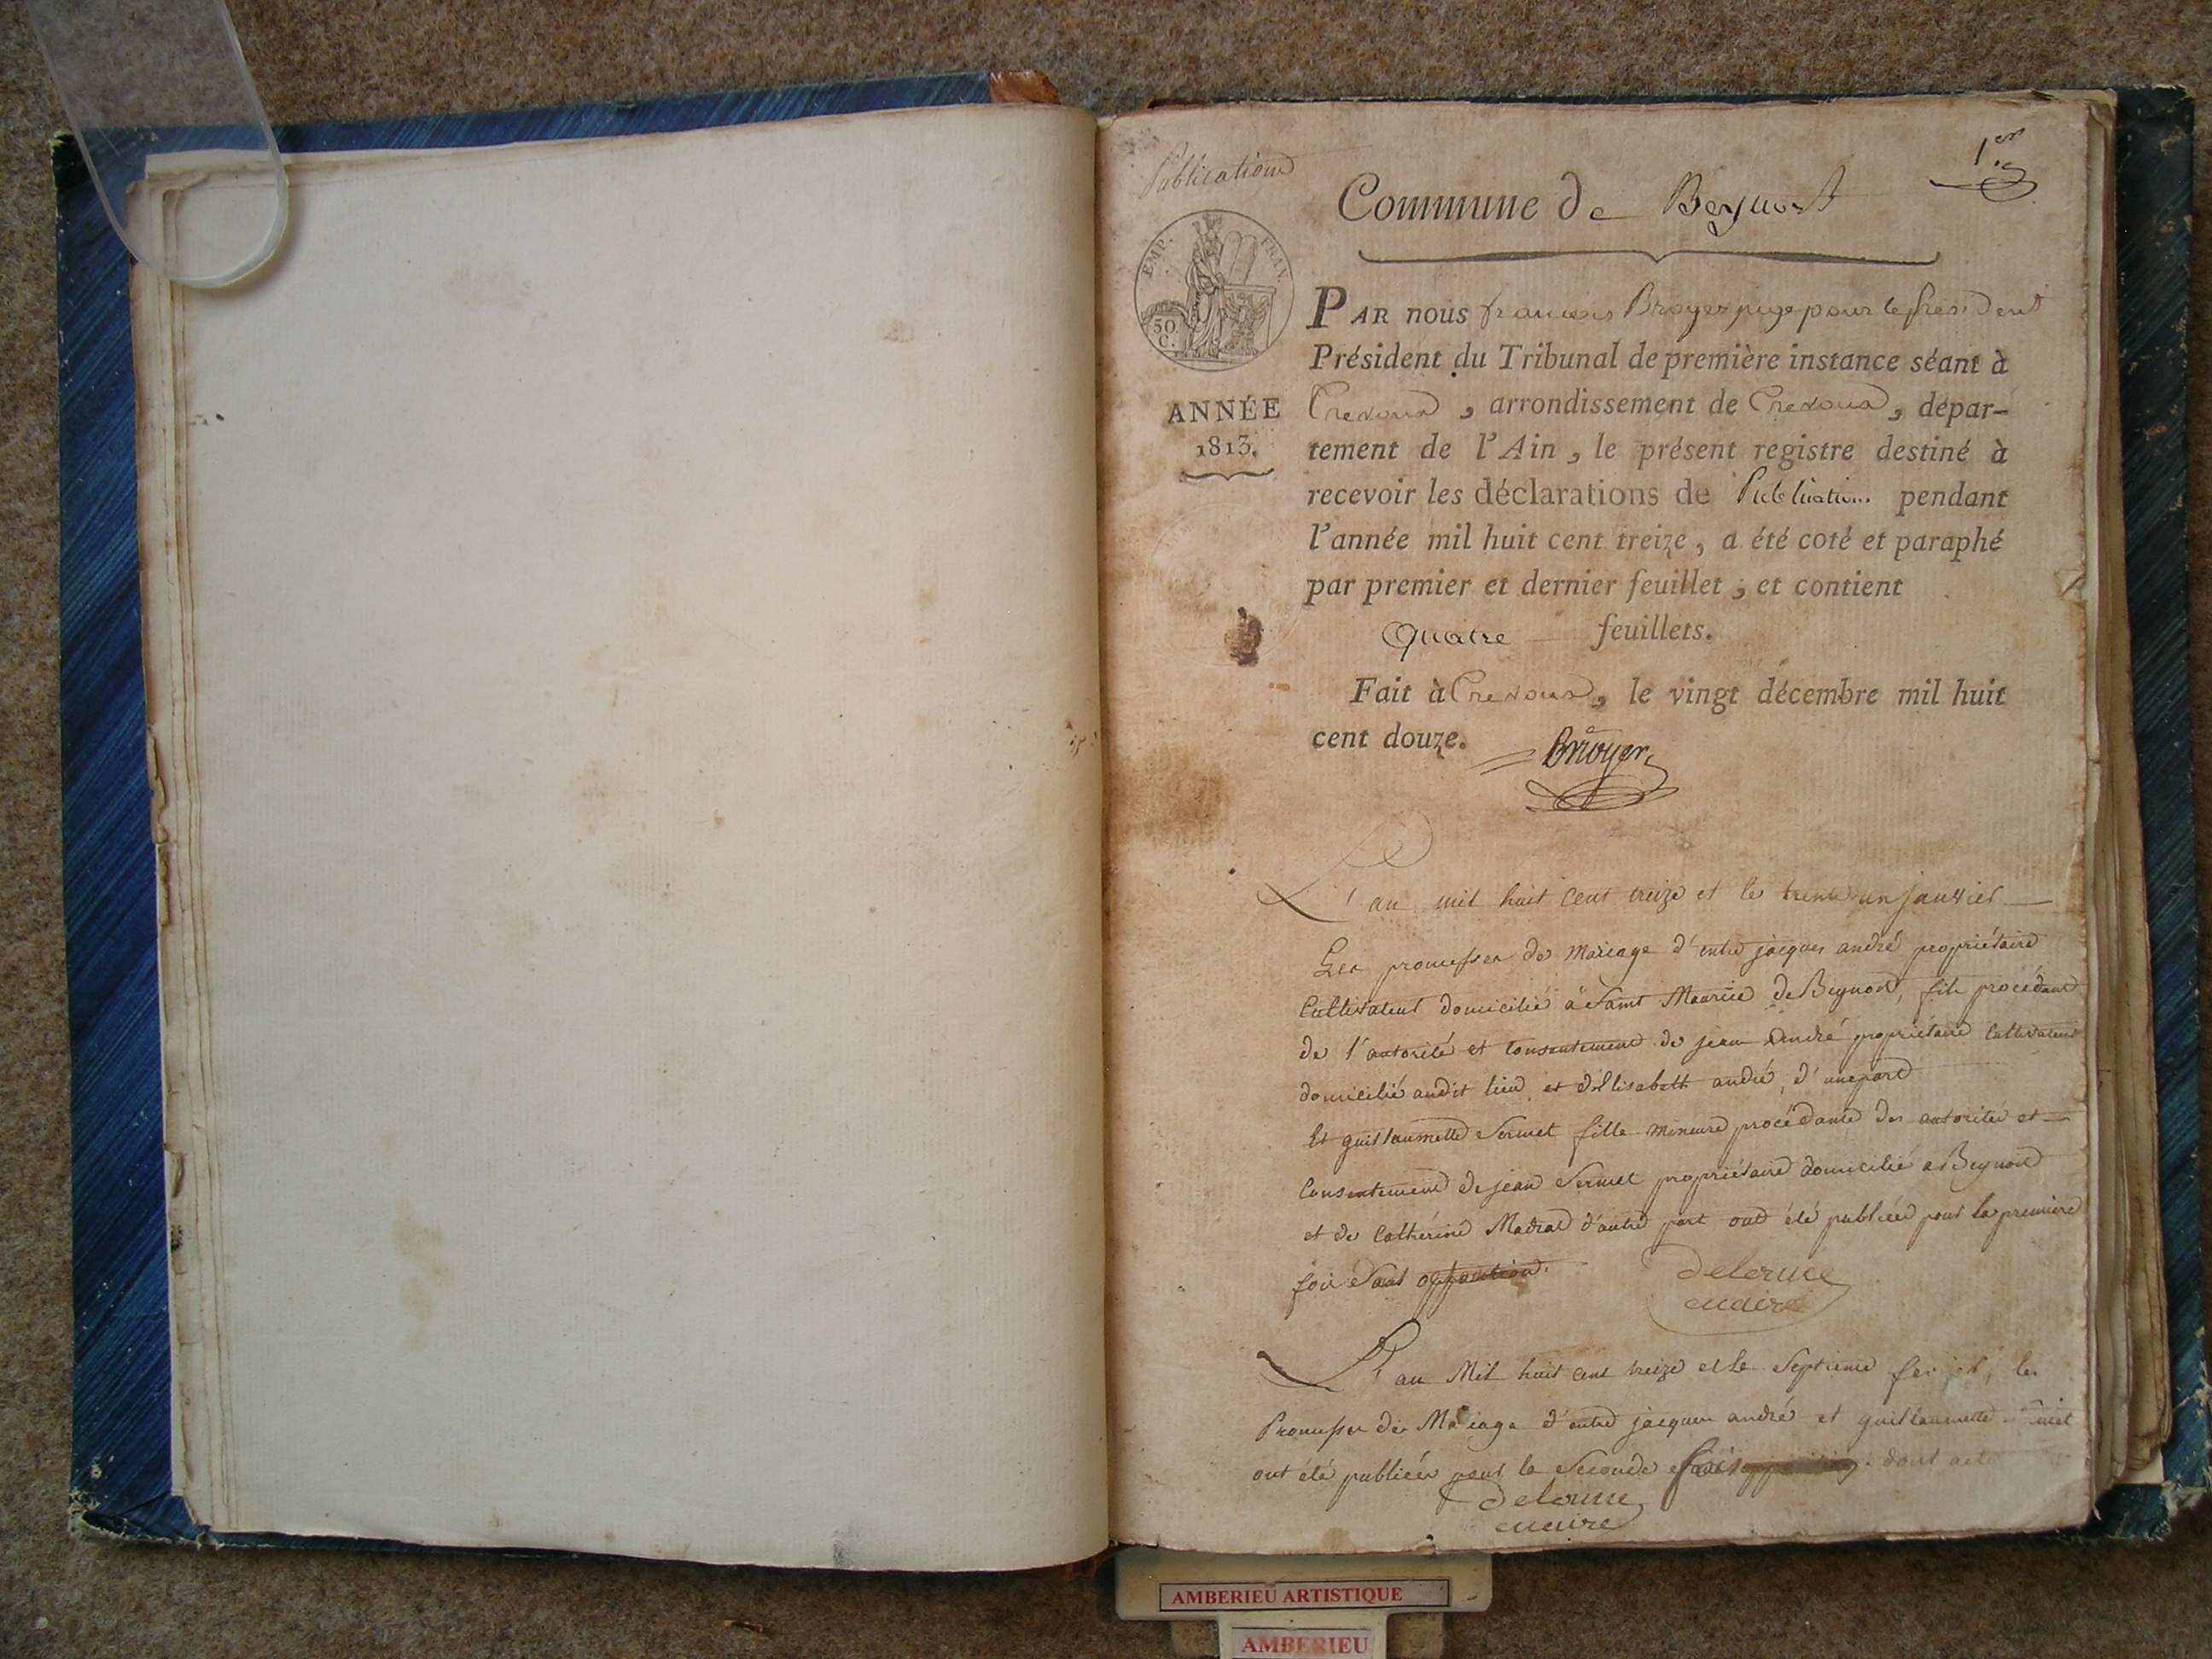 Publications
1er
Commune de Beynost
EMP. FRAN.
50 C.
ANNÉE
1813.
PAR nous francois Broyer juge pour le president
Président du Tribunal de première instance séant à
Trevoux, arrondissement de Trevoux, dépar-
tement de l'Ain, le présent registre destiné à
recevoir les déclarations de Publication pendant
l'année mil huit cent treize, a été coté et paraphé
par premier et dernier feuillet ; et contient
Quatre feuillets.
Fait à Trevoux, le vingt décembre mil huit
cent douze.
Broyer
L'an mil huit cent treize et le trente un janvier
Les promesses de Mariage d'entre jacques andré propriétaire
Cultivateur domicilié à Saint Maurice de Beynost, fils procédant
de l'autorité et consentement de jean André propriétaire Cultivateur
domicilié audit lieu et d'Elisabeth andré, d'une part
Et guillaumette Sermet fille mineure procédante des autorités et
Consentement de jean Sermet propriétaire domicilié a Beynost
et de Catherine d'autre part ont été publiées pour la premiere
fois Sans opposition.
delorme
maire
L'an Mil huit cent treize et le Septieme , les
Promesses de Mariage d'entre jacques andré et guillaumette
ont été publiées pour la Seconde fois dont acte
delorme
maire
AMBERIEU ARTISTIQUE
AMBERIEU